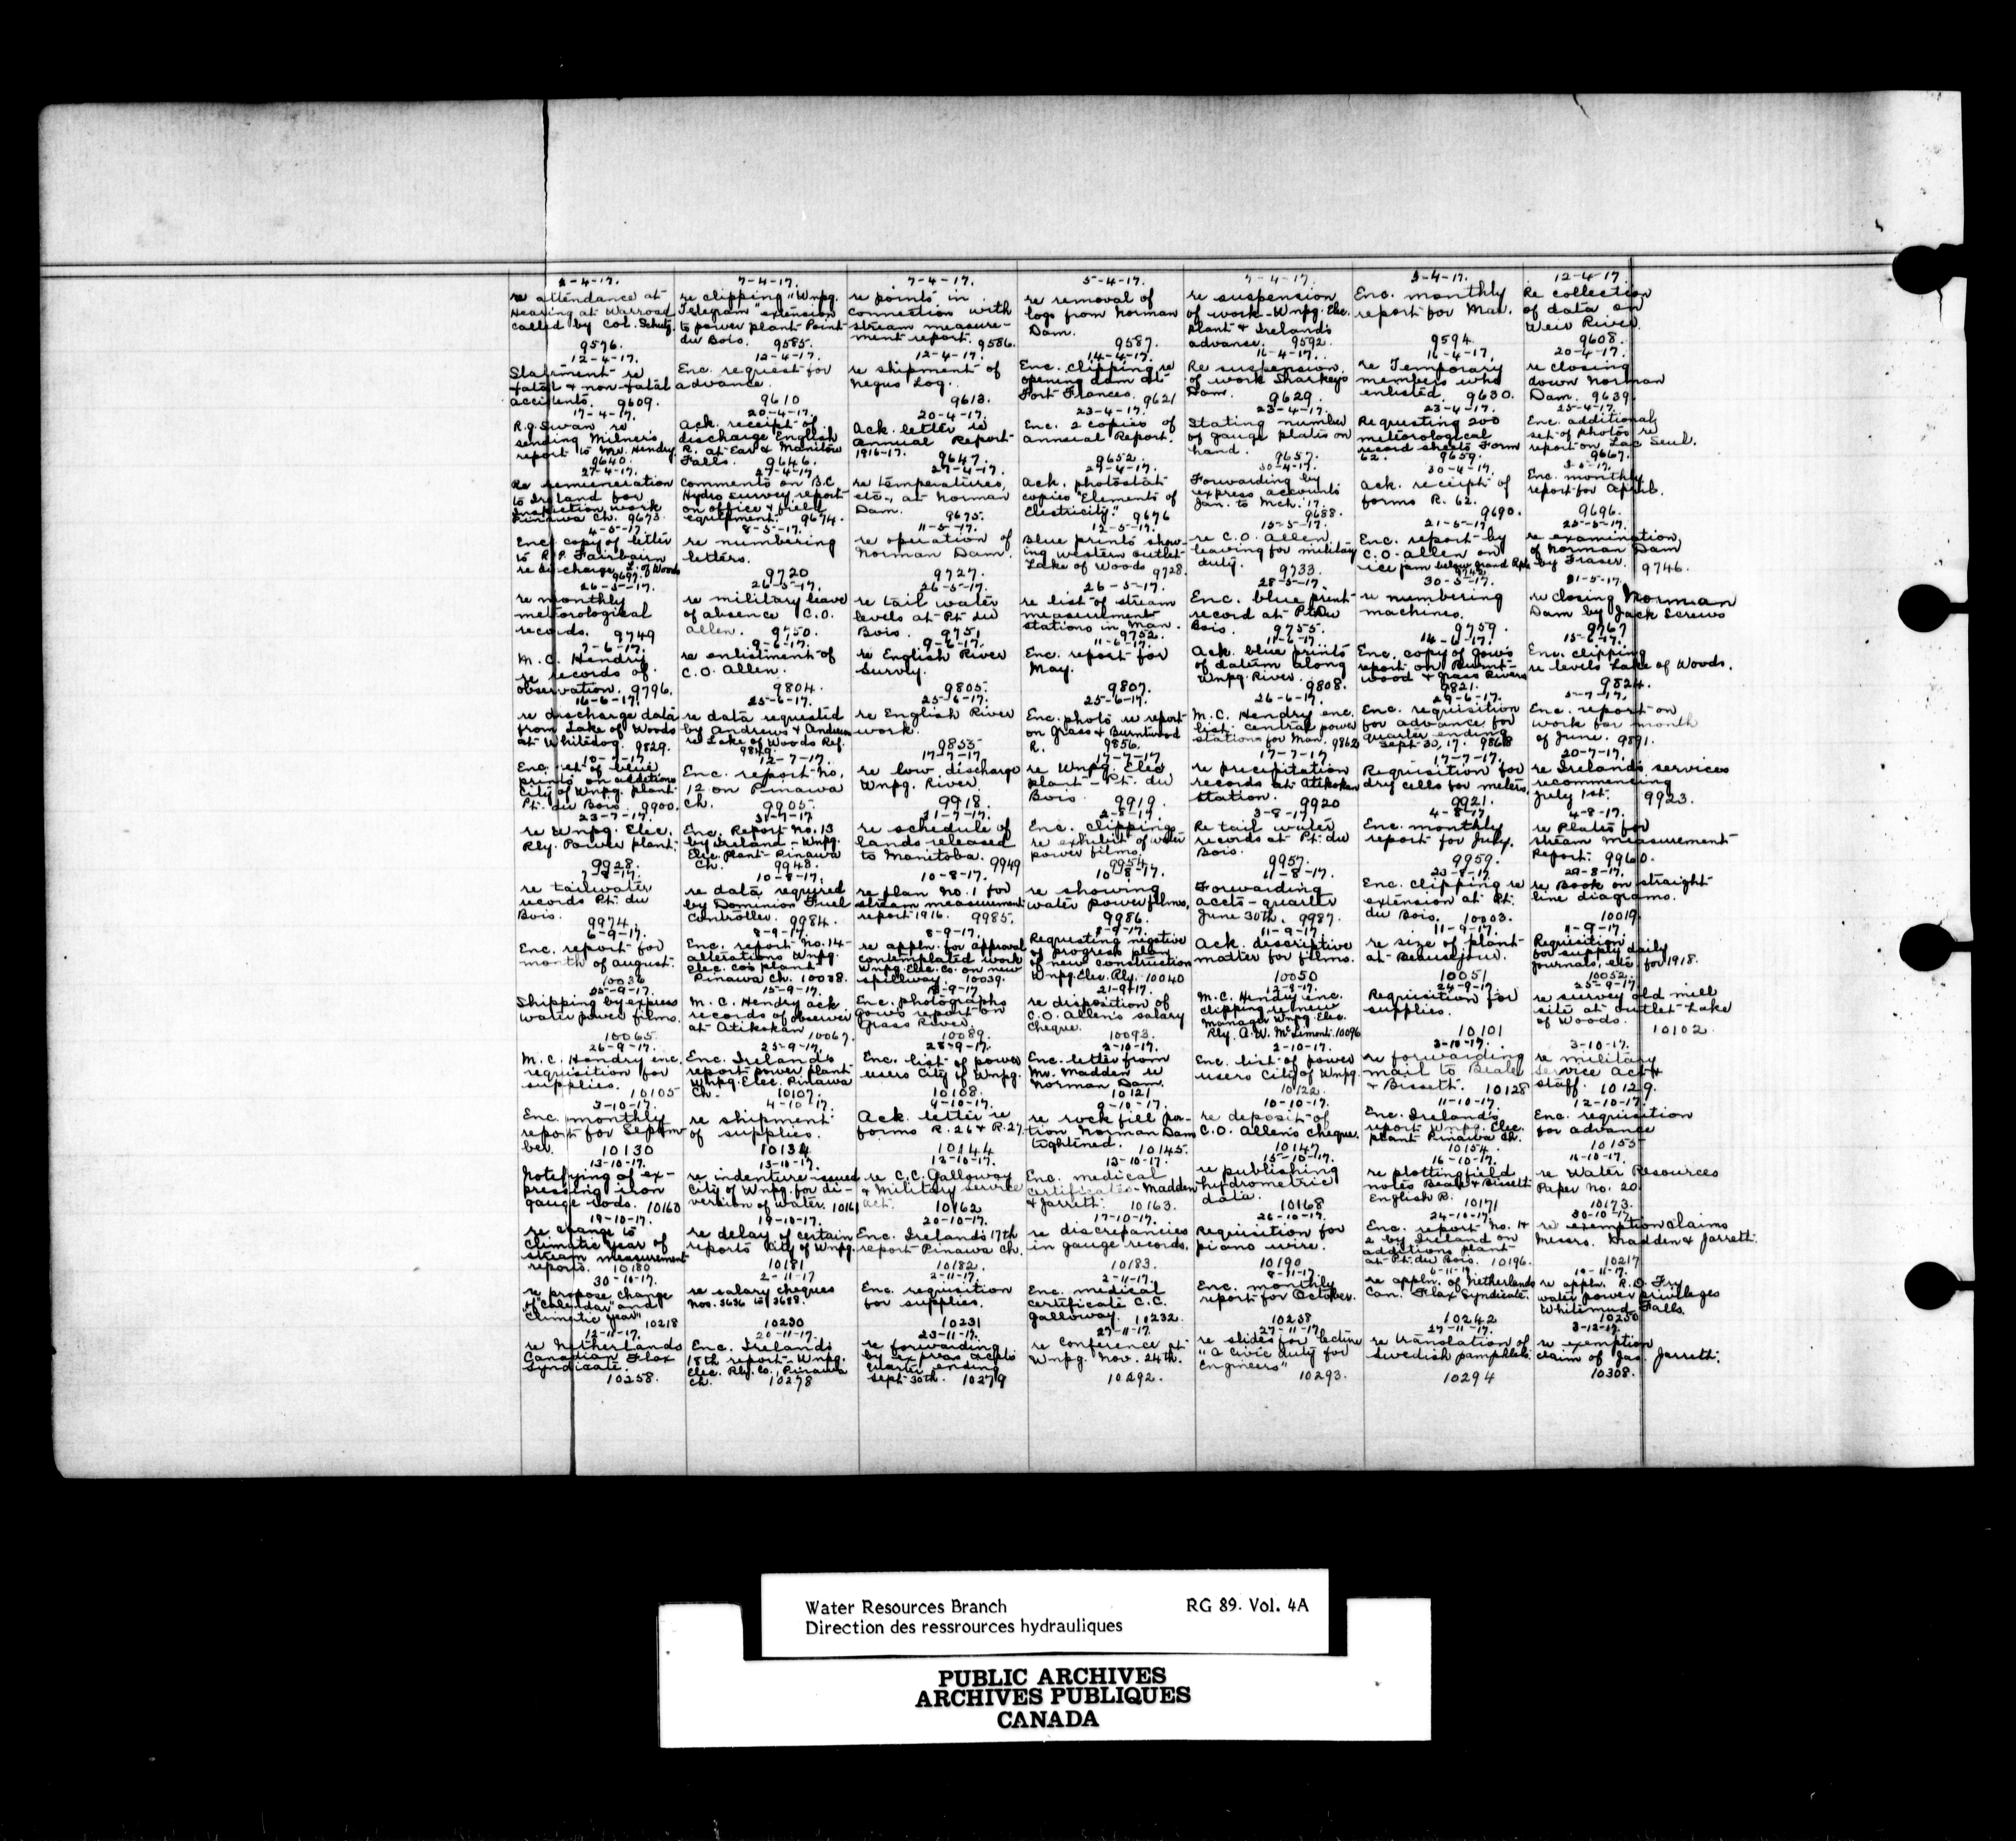 2-4-17.
re attendance at
Hearing at Warroad
called by Col. Schutz.
9576.
7-4-17.
re clipping "Wnpg.
Telegram" extension
to power plant Point
du Bois. 9585.
7-4-17.
re points in
connection with
stream measure-
ment report. 9586.
5-4-17.
re removal of
logs from Norman
Dam.
9587.
7-4-17.
re suspension
of work - Wnpg. Elec.
Plant & Ireland's
advance. 9592.
3-4-17.
Enc. monthly
report for Mar.
9594.
12-4-17
Re collection
of data on
Weir River.
9608.
12-4-17.
Statement re
fatal & non-fatal
accidents. 9609.
12-4-17.
Enc. request for
advance.
9610
12-4-17.
re shipment of
Negus Log.
9613.
14-4-17.
Enc. clipping re
opening dam at
Fort Frances. 9621
16-4-17.
Re suspension
of work Sharkey's
Dam. 9629.
16-4-17.
re Temporary
members who
enlisted. 9630.
20-4-17.
re closing
down Norman
Dam. 9639.
17-4-17.
R.G. Swan re
sending Milner's
report to Mr. Hendry.
9640.
20-4-17.
Ack. receipt of
discharge English
R. at Ear & Manitou
Falls. 9646.
20-4-17.
Ack. letter re
Annual Report
1916-17. 9647.
23-4-17.
Enc. 2 copies of
Annual Report.
9652.
23-4-17.
Stating number
of gauge plates on
hand. 9657.
23-4-17.
Requesting 200
meteorological
record sheets Form
62. 9659.
25-4-17.
Enc. additional
set of photos re
report on Lac Seul.
9667.
27-4-17.
Re remuneration
to Ireland for
inspection work
Pinawa Ch. 9673.
27-4-17
Comments on B.C.
Hydro survey report
on office & field
equipment. 9674.
27-4-17.
re temperatures,
etc., at Norman
Dam. 9675.
27-4-17.
Ack. photostat
copies "Elements of
Electricity." 9676
30-4-17.
Forwarding by
express accounts
Jan. to Mch. '17.
9688.
30-4-17.
Ack. receipt of
forms R. 62.
9690.
3-5-17.
Enc. monthly
report for April.
9696.
4-5-17
Enc. copy of letter
to R.P. Fairbairn
re discharge L. of Woods
9697.
8-5-17.
re numbering
letters.
9720
11-5-17.
re operation of
Norman Dam.
9727.
12-5-17.
Blue prints show-
ing western outlet
Lake of Woods 9728.
15-5-17.
re C.O. Allen
leaving for military
duty. 9733.
21-5-17
Enc. report by
C.O. Allen on
ice jam below Grand Rpds
25-5-17.
re examination
of Norman Dam
by Fraser. 9746.
26-5-17.
re monthly
meteorological
records. 9749
26-5-17.
re military leave
of absence C.O.
Allen. 9750.
26-5-17.
re tail water
levels at Pt. du
Bois. 9751
26-5-17.
re list of stream
measurement
stations in Man.
9752.
28-5-17.
Enc. blue print
record at Pt. du
Bois. 9755.
30-5-17.
re numbering
machines.
9759.
31-5-17.
re closing Norman
Dam by Jack Screws
9767
7-6-17.
M. C. Hendry
re records of
observation. 9796.
9-6-17.
re enlistment of
C.O. Allen.
9804.
9-6-17.
re English River
Survey.
9805.
11-6-17.
Enc. report for
May.
9807.
11-6-17
Ack. blue prints
of datum along
Wnpg. River. 9808.
14-6-17.
Enc. copy of Gow's
report on Burnt-
wood & Grass Rivers
9821.
15-6-17.
Enc. clipping
re levels Lake of Woods.
9824.
16-6-17.
re discharge data
from Lake of Woods
at Whitedog. 9829.
25-6-17.
re data requested
by Andrews & Andrews
re Lake of Woods Ref.
9849.
25-6-17.
re English River
work.
9855
25-6-17.
Enc. photo re report
on Grass & Burntwood
R. 9856.
26-6-17.
M. C. Hendry enc.
list central power
stations for Man. 9862
29-6-17.
Enc. requisition
for advance for
quarter ending
Sept 30, 17. 9868
5-7-17.
Enc. report on
work for month
of June. 9891.
10-7-17
Enc. set of blue
prints on additions
City of Wnpg. plant
Pt. du Bois. 9900.
12-7-17.
Enc. report No.
12 on Pinawa
Ch. 9905.
17-7-17
re low discharge
Wnpg. River.
9918.
17-7-17
re Wnpg. Elec.
plant - Pt. du
Bois. 9919.
17-7-17
re precipitation
records at Atikokan
station. 9920
17-7-17.
Requisition for
dry cells for meters.
9921.
20-7-17.
re Ireland's services
recommencing
July 1st. 9923.
23-7-17.
re Wnpg. Elec.
Rly. Power plant.
9928.
31-7-17
Enc. Report No. 13
by Ireland - Wnpg.
Elec. Plant - Pinawa
Ch. 9948.
31-7-17.
re schedule of
lands released
to Manitoba. 9949
2-8-17.
Enc. clippings
re exhibit of water
power films.
9954.
3-8-17.
Re tail water
records at Pt. du
Bois. 9957.
4-8-17
Enc. monthly
report for July.
9959.
4-8-17.
re Plates for
stream measurement
Report. 9960.
7-8-17.
re tailwater
records Pt. du
Bois. 9974.
10-8-17.
re data required
by Dominion Fuel
Controller. 9984.
10-8-17.
re plan No. 1 for
stream measurement
report 1916. 9985.
10-8-17.
re showing
water power films.
9986.
11-8-17.
Forwarding
accts - quarter
June 30th. 9987.
23-8-17
Enc. clipping re
extension at Pt.
du Bois. 10003.
29-8-17.
re Book on straight
line diagrams.
10019.
6-9-17.
Enc. report for
month of August.
10036
8-9-17.
Enc. report No. 14-
alterations Wnpg.
Elec. Co's plant
Pinawa Ch. 10038.
8-9-17.
re appln. for approval
contemplated work
Wnpg. Elec. Co. on new
spillway. 10039.
8-9-17.
Requesting negative
of progress plan
of new construction
Wnpg. Elec. Rly. 10040
11-9-17.
Ack. descriptive
matter for films.
10050
11-9-17.
re size of plant
at Beausejour.
10051
11-9-17.
Requisition
for supply daily
journals, etc for 1918.
10052.
15-9-17.
Shipping by express
water power films.
10065
15-9-17.
M. C. Hendry ack
records of observer
at Atikokan 10067.
18-9-17.
Enc. photographs
Gow's report on
Grass River.
10089.
21-9-17.
re disposition of
C.O. Allen's salary
cheque.
10093.
M. C. Hendry enc.
clipping re new
Manager Wnpg. Elec.
Rly. A.W. McLimont. 10096
24-9-17
Requisition for
supplies.
10101
25-9-17
re survey old mill
site at outlet - Lake
of Woods. 10102.
26-9-17.
M. C. Hendry enc.
requisition for
supplies.
10105
25-9-17.
Enc. Ireland's
report power plant
Wnpg. Elec. Pinawa
Ch. 10107.
28-9-17.
Enc. list of power
users City of Wnpg.
10108.
2-10-17.
Enc. letter from
Mr. Madden re
Norman Dam.
10121
2-10-17.
Enc. list of power
users City of Wnpg.
10122.
3-10-17.
re forwarding
mail to Beale
& Bissett. 10128
3-10-17.
re military
service Act &
staff. 10129.
3-10-17.
Enc. monthly
report for Septem-
ber. 10130
4-10-17.
re shipment
of supplies.
10134
4-10-17.
Ack. letter re
forms R.26 & R.27.
10144
9-10-17.
re rock fill por-
tion Norman Dam
tightened. 10145.
10-10-17.
re deposit of
C.O. Allen's cheque.
10147
11-10-17.
Enc. Ireland's
report Wnpg. Elec.
plant Pinawa Ch.
10154.
12-10-17.
Enc. requisition
for advance
10155
13-10-17.
Notifying of ex-
pressing iron
gauge rods. 10160
13-10-17.
re indenture issued
City of Wnpg. for di-
version of water. 10161
13-10-17.
re C.C. Galloway
& Military Service
Act. 10162
13-10-17.
Enc. medical
certificates - Madden
& Jarrett. 10163.
15-10-17.
re publishing
hydrometric
data.
10168
16-10-17.
re plotting field
notes Beale & Bissett
English R. 10171
16-10-17.
re Water Resources
Paper No. 20.
10173.
19-10-17.
re change to
climatic year of
stream measurement
reports. 10180
19-10-17.
re delay of certain
reports City of Wnpg.
10181
20-10-17.
Enc. Ireland's 17th
report Pinawa Ch.
10182.
17-10-17.
re discrepancies
in gauge records.
10183.
26-10-17.
Requisition for
piano wire.
10190
24-10-17.
Enc. report No. 1 &
2 by Ireland on
additions plant
at Pt. du Bois. 10196.
30-10-17
re exemption claims
Messrs. Madden & Jarrett.
10217
30-10-17.
re propose change
of "Calendar" and
"Climatic year"
10218
2-11-17
re salary cheques
Nos. 3636 to 3638.
10230
2-11-17.
Enc. requisition
for supplies.
10231
2-11-17.
Enc. medical
certificate C.C.
Galloway. 10232.
8-11-17.
Enc. monthly
report for October.
10238
6-11-17
re appln. of Netherlands
Can. Flax Syndicate.
10242
10-11-17.
re appln. R.D. Fry
water power privileges
Whitemud Falls.
10250
12-11-17.
re Netherlands
Canadian Flax
Syndicate.
10258.
20-11-17.
Enc. Ireland's
18th report - Wnpg.
Elec. Rly. Co., Pinawa
Ch. 10278
23-11-17.
re forwarding
by express acc'ts
Quarter ending
Sept. 30th. 10279
27-11-17.
re Conference at
Wnpg. Nov. 24th.
10292.
27-11-17.
re slides for lecture
"A Civic duty for
Engineers"
10293.
27-11-17.
re translation of
Swedish pamphlets.
10294
3-12-17.
re exemption
claim of Jas. Jarrett.
10308.
Water Resources Branch RG 89. Vol. 4A
Direction des ressrources hydrauliques
PUBLIC ARCHIVES
ARCHIVES PUBLIQUES
CANADA